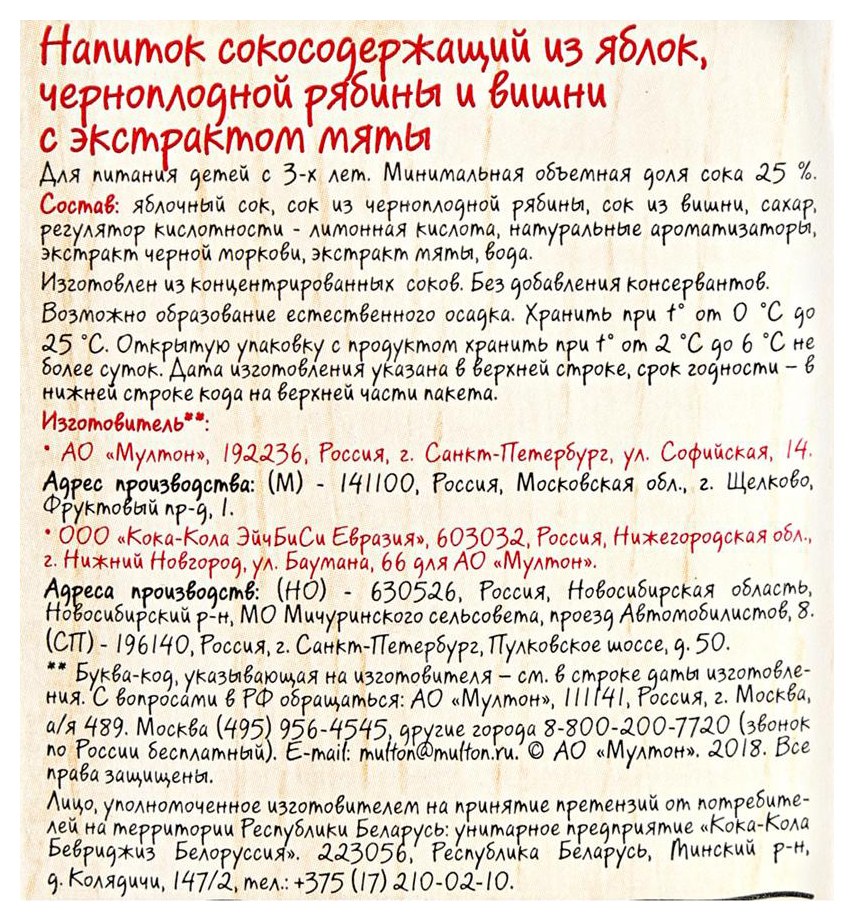 Напиток сокосодержащий из яблок,
черноплодной рябины и вишни
с экстрактом мяты
Для питания детей с 3-х лет. Минимальная объемная доля сока 25 %.
Состав: яблочный сок, сок из черноплодной рябины, сок из вишни, сахар,
регулятор кислотности - лимонная кислота, натуральные ароматизаторы,
экстракт черной моркови, экстракт мяты, вода.
Изготовлен из концентрированных соков. Без добавления консервантов.
Возможно образование естественного осадка. Хранить при t° от 0 °С до
25 °С. Открытую упаковку с продуктом хранить при t° от 2 °С до 6 °С не
более суток. Дата изготовления указана в верхней строке, срок годности – в
нижней строке кода на верхней части пакета.
Изготовитель**:
• АО «Мултон», 192236, Россия, г. Санкт-Петербург, ул. Софийская, 14.
Адрес производства: (М) - 141100, Россия, Московская обл., г. Щелково,
Фруктовый пр-д, 1.
• ООО «Кока-Кола ЭйчБиСи Евразия», 603032, Россия, Нижегородская обл.,
г. Нижний Новгород, ул. Баумана, 66 для АО «Мултон».
Адреса производств: (НО) - 630526, Россия, Новосибирская область,
Новосибирский р-н, МО Мичуринского сельсовета, проезд Автомобилистов, 8.
(СП) - 196140, Россия, г. Санкт-Петербург, Пулковское шоссе, д. 50.
** Буква-код, указывающая на изготовителя – см. в строке даты изготовле-
ния. С вопросами в РФ обращаться: АО «Мултон», 111141, Россия, г. Москва,
а/я 489. Москва (495) 956-4545, другие города 8-800-200-7720 (звонок
по России бесплатный). E-mail: multon@multon.ru. © АО «Мултон». 2018. Все
права защищены.
Лицо, уполномоченное изготовителем на принятие претензий от потребите-
лей на территории Республики Беларусь: унитарное предприятие «Кока-Кола
Бевриджиз Белоруссия». 223056, Республика Беларусь, Минский р-н,
д. Колядичи, 147/2, тел.: +375 (17) 210-02-10.